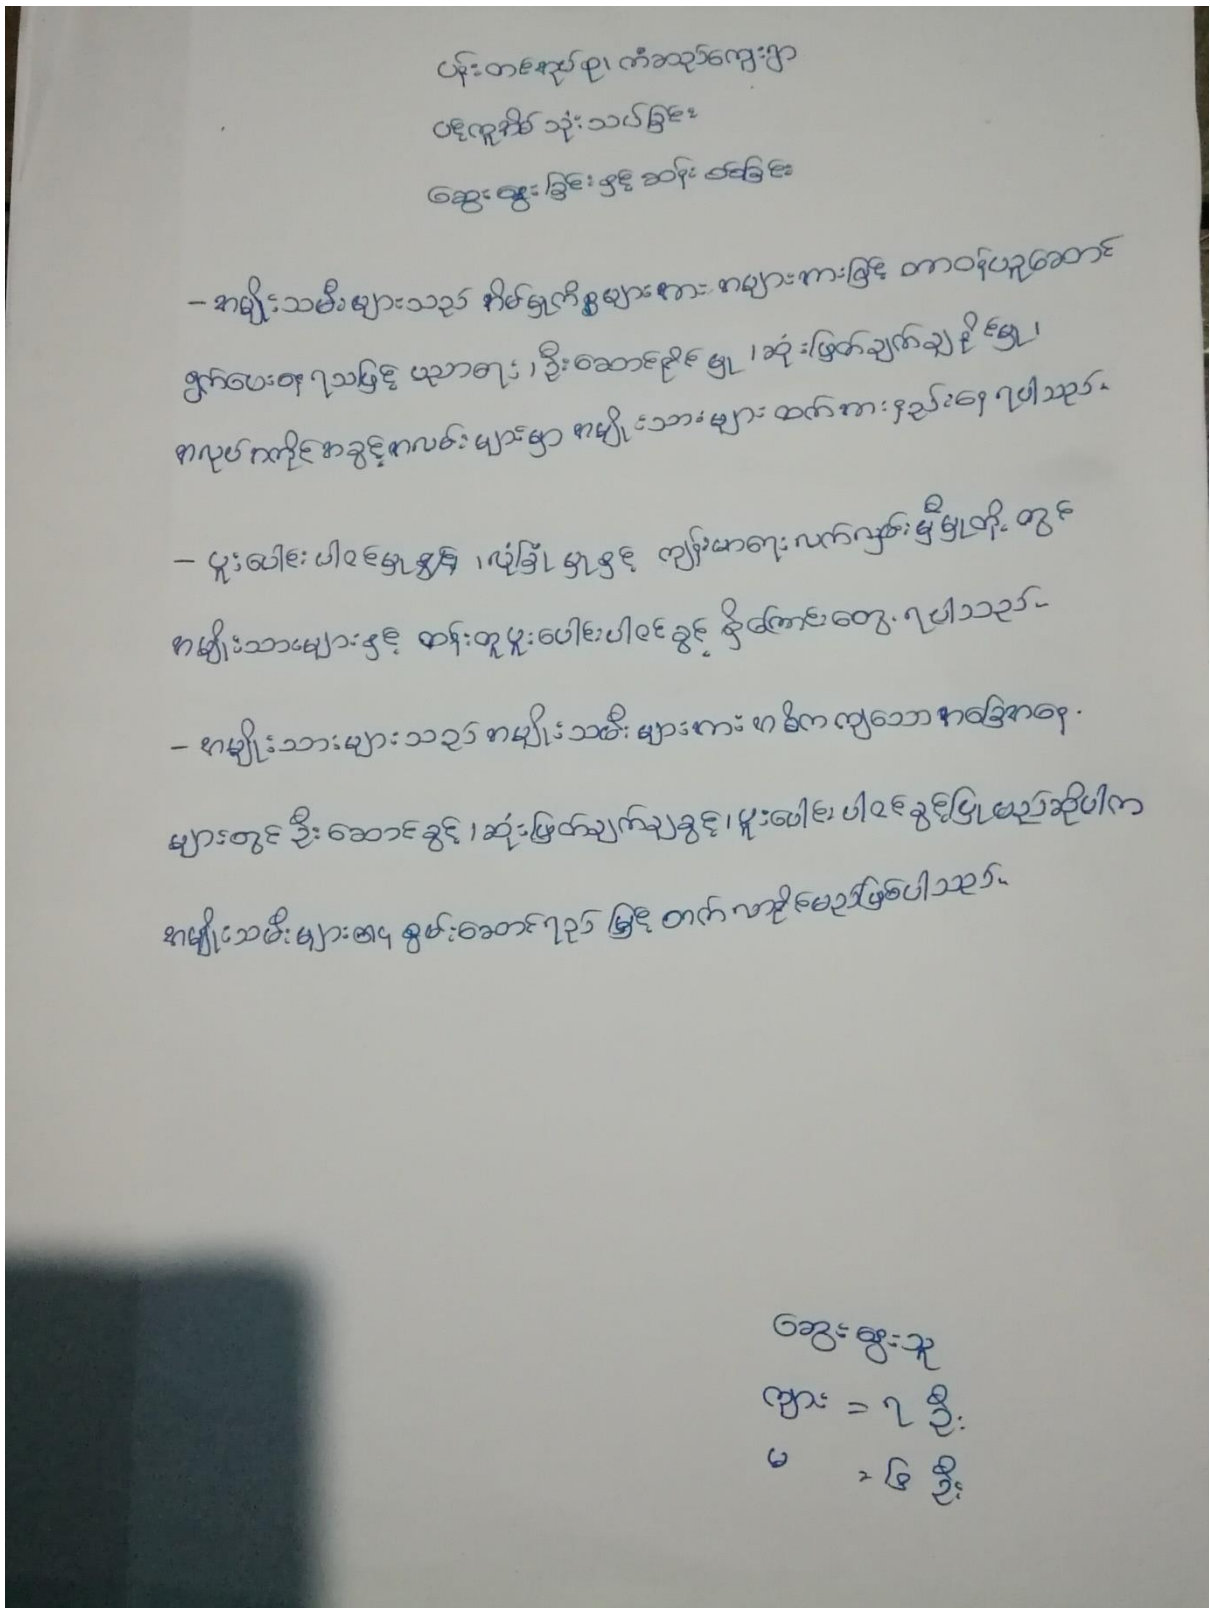 ပန်းတစ်အုပ်စု၊ ကံဆည်ကျေးရွာ
ပင့်ကူအိမ် သုံးသပ်ခြင်း
ဆွေးနွေးခြင်းနှင့် ဆန်းစစ်ခြင်း
- အမျိုးသမီးများသည် အိမ်မှုကိစ္စများအား အများအားဖြင့် တာဝန်ယူဆောင်
ရွက်ပေးနေရသဖြင့် ပညာရေး၊ ဦးဆောင်နိုင်မှု၊ ဆုံးဖြတ်ချက်ချနိုင်မှု၊
အလုပ်အကိုင်အခွင့်အလမ်းများမှာ အမျိုးသားများထက်အားနည်းနေရပါသည်။
- ပူးပေါင်းပါဝင်မှုနှင့်၊ လုံခြုံမှုနှင့် ကျန်းမာရေးလက်လှမ်းမှီမှုတို့တွင်
အမျိုးသားများနှင့် တန်းတူပူးပေါင်းပါဝင်ခွင့် ရှိကြောင်းတွေ့ရပါသည်။
- အမျိုးသားများသည် အမျိုးသမီးများအား အဓိကကျသောအခြေအနေ
များတွင် ဦးဆောင်ခွင့်၊ ဆုံးဖြတ်ချက်ချခွင့်၊ ပူးပေါင်းပါဝင်ခွင့်ပြုမည်ဆိုပါက
အမျိုးသမီးများ၏ စွမ်းဆောင်ရည် မြှင့်တက်လာနိုင်မည်ဖြစ်ပါသည်။
ဆွေးနွေးသူ
ကျား = ၇ ဦး
မ = ၆ ဦး